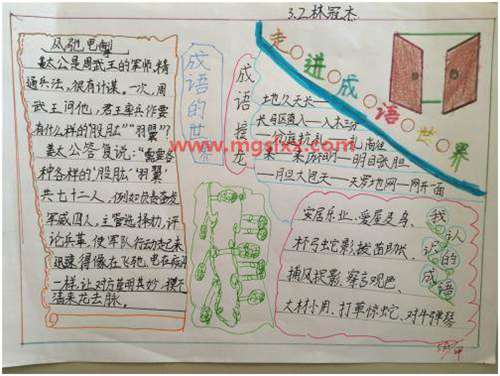 3.2林冠杰
走进成语世界
风驰电掣
姜太公是周武王的军师,精
通兵法,很有计谋。一次,周
武王问他:君王率兵作要
有什样的"股肱""羽翼"?
姜太公答复说:"需要各
种各样的"股肱""羽翼
共七十二人,例如负责奋发
军威四人,主管选择助,评
论兵革,使军队行动起来
迅速得像在飞驰,电在疾
一样,让对方草明其妙,摸不
清来龙去脉。
成语的世
www.mgslxx.com
成语接龙
地久天长
长马区直入—入木三分
来—来为方明—明目张胆
—胆大包天—天罗地网—网开面
我认识的成语
安居乐业、爱屋及乌、
杯弓蛇影、拔苗助长、
捕风捉影、察言观色、
大材小用、打草惊蛇、对牛弹琴